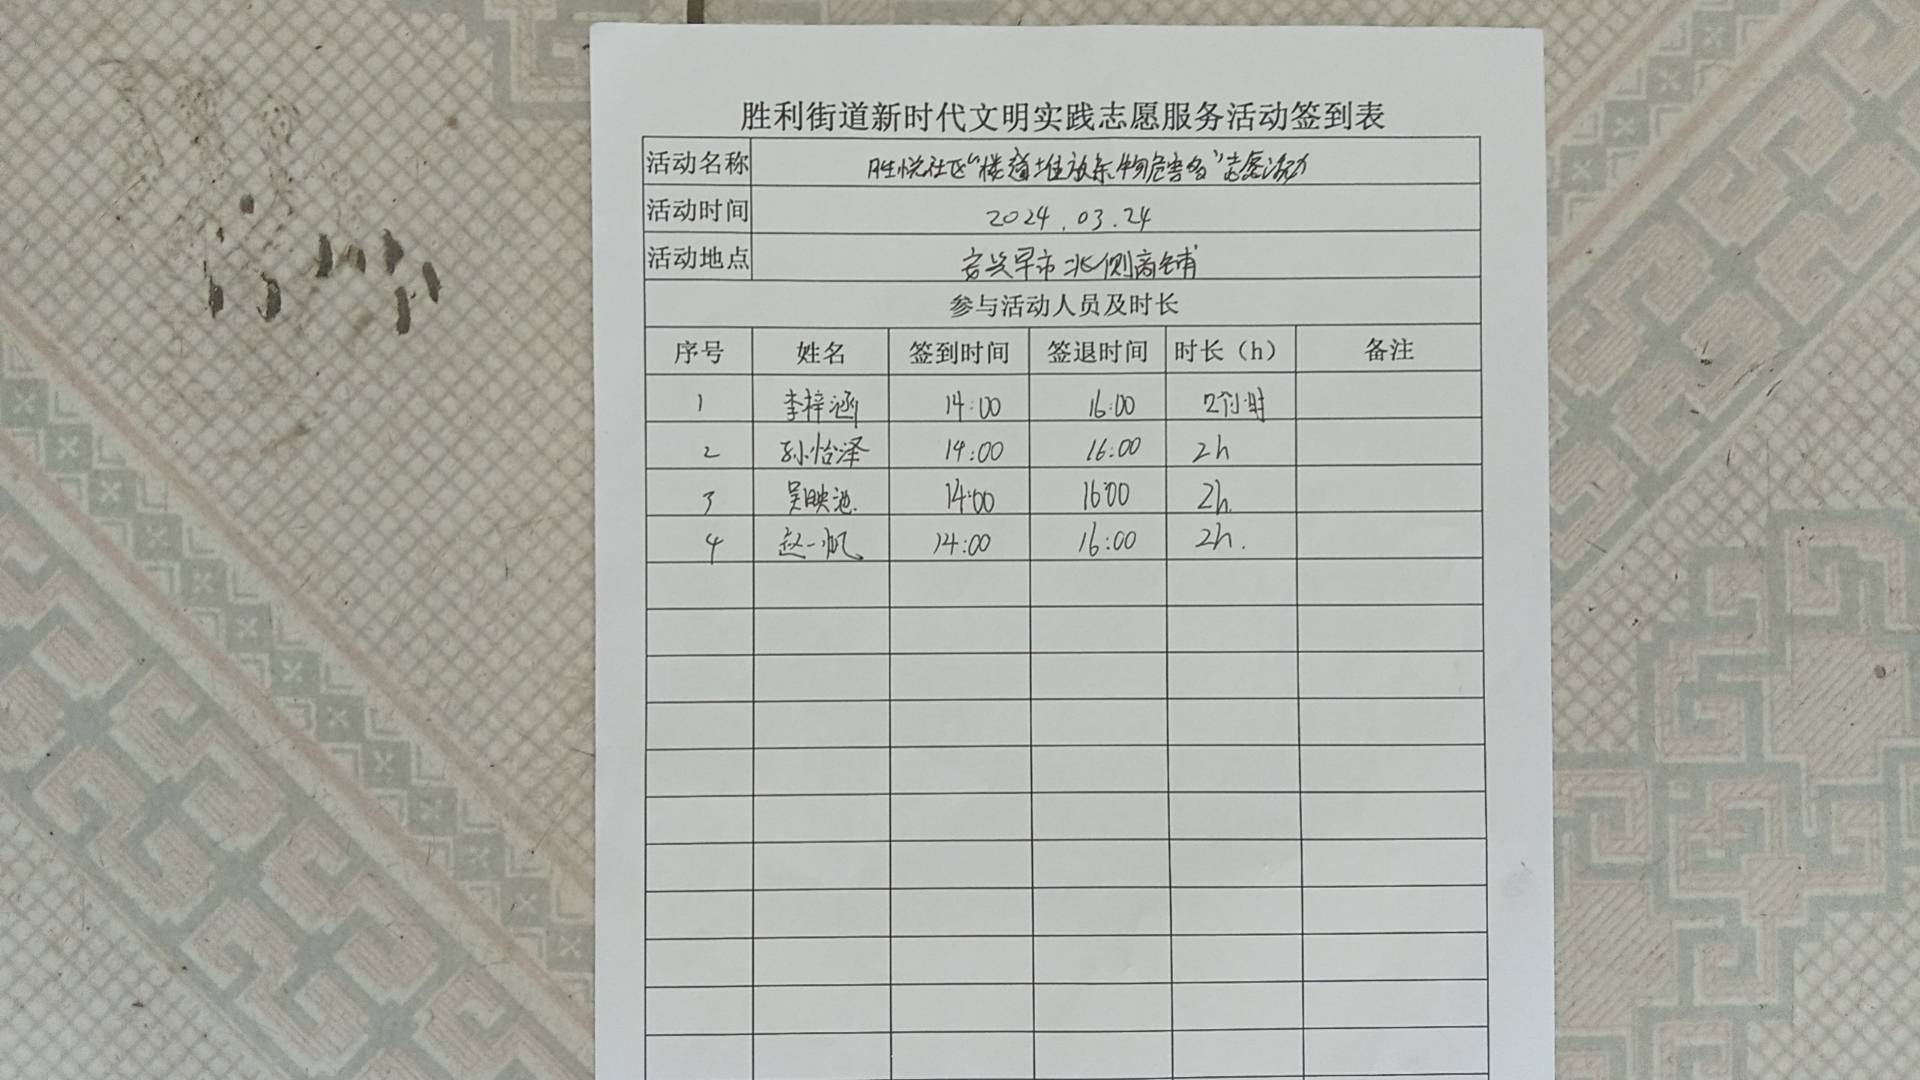 胜利街道新时代文明实践志愿服务活动签到表
活动名称 胜悦社区“楼道堆放杂物危害多”志愿活动
活动时间 2024.03.24
活动地点 安兴早市北侧商铺
参与活动人员及时长
序号 姓名 签到时间 签退时间 时长（h） 备注
1 李梓涵 14:00 16:00 2个小时
2 孙怡泽 14:00 16:00 2h
3 吴映池 14:00 16:00 2h.
4 赵一帆 14:00 16:00 2h.